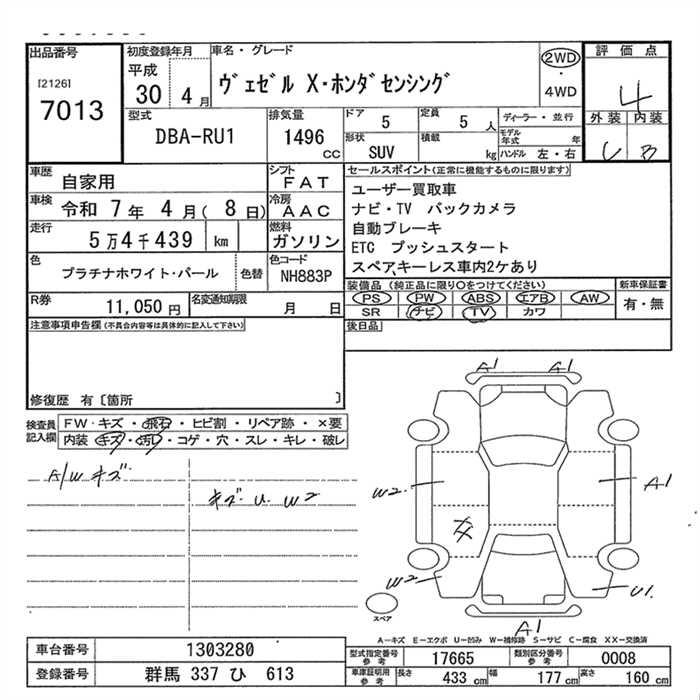 出品番号
[2126]
7013
初度登録年月
平成
30 4月
車名・グレード
ヴェゼル X・ホンダセンシング
2WD
・
4WD
評価点
4
外装 内装
B
型式
DBA-RU1
排気量
1496
cc
ドア
5
定員
5 人
形状
SUV
積載
kg
ディーラー・並行
モデル年式 年
ハンドル 左・右
車歴
自家用
シフト
FAT
車検
令和 7年 4月( 8日)
冷房
AAC
走行
5万4千439 km
燃料
ガソリン
色
プラチナホワイト・パール
色替
色コード
NH883P
R券
11,050 円
名変通知期限
月 日
セールスポイント(正常に機能するものに限ります)
ユーザー買取車
ナビ・TV バックカメラ
自動ブレーキ
ETC プッシュスタート
スペア,キーレス車内2ケあり
装備品 (純正品に限り○をつけてください)
新車保証書
PS PW ABS エアB AW
SR ナビ TV カワ
有・無
後日品
注意事項申告欄(不具合内容等は具体的に記入して下さい)
修復歴 有〔箇所 〕
検査員記入欄
FW・キズ・飛石・ヒビ割・リペア跡・×要
内装・キズ・汚レ・コゲ・穴・スレ・キレ・破レ
A/W キズ
キズ U W2
A1 A1
W2
A1
W2
U1
A1
スペア
A−キズ E−エクボ U−凹み W−補修跡 S−サビ C−腐食 XX−交換済
車台番号
1303280
登録番号
群馬 337 ひ 613
型式指定番号
参考
17665
類別区分番号
参考
0008
車庫証明用
参考
長さ 433 cm
幅 177 cm
高さ 160 cm